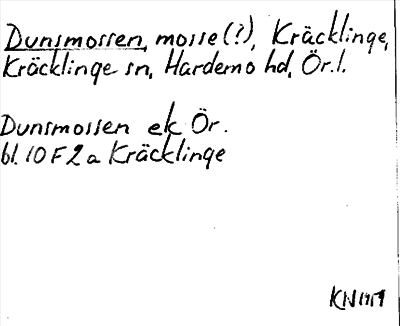 Dunsmossen, mosse(?), Kräcklinge,
Kräcklinge sn, Hardemo hd, Ör.l.
Dunsmossen ek Ör.
bl. 10 F 2 a Kräcklinge